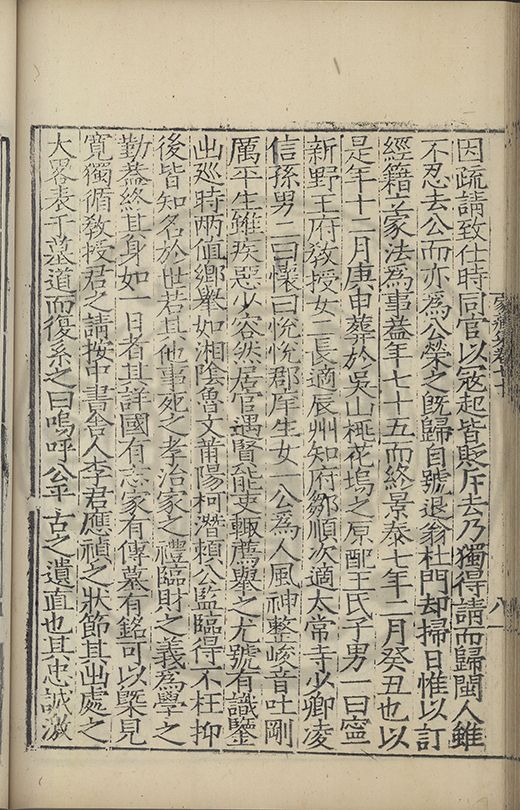 因疏請致仕時同官以寇起皆貶斥去乃獨得請而歸閩人雖
不忍去公而亦為公榮之既歸自號退翁杜門却掃日惟以訂
經籍立家法爲事葢年七十五而終景泰七年二月癸丑也以
是年十二月庚申葬於吳山桃花塢之原配王氏子男一曰寧
新野王府敎授女二長適辰州知府鄒順次適太常寺少卿凌
信孫男二曰懷曰恱恱郡庠生女一公爲人風神整峻音吐剛
厲平生雖疾惡少容然居官遇賢能吏輙薦舉之尤號有識鑒
出廵時兩值鄉舉如湘陰魯文莆陽柯潛頼公監臨得不枉抑
後皆知名於世若其他事死之孝治家之禮臨財之義爲學之
勤葢終其身如一日者其詳國有志家有傳墓有銘可以槩見
寛獨循敎授君之請按中書舍人李君應禎之狀節其出處之
大畧表于墓道而復系之曰嗚呼公乎古之遺直也其忠誠激
家藏集卷七十
八